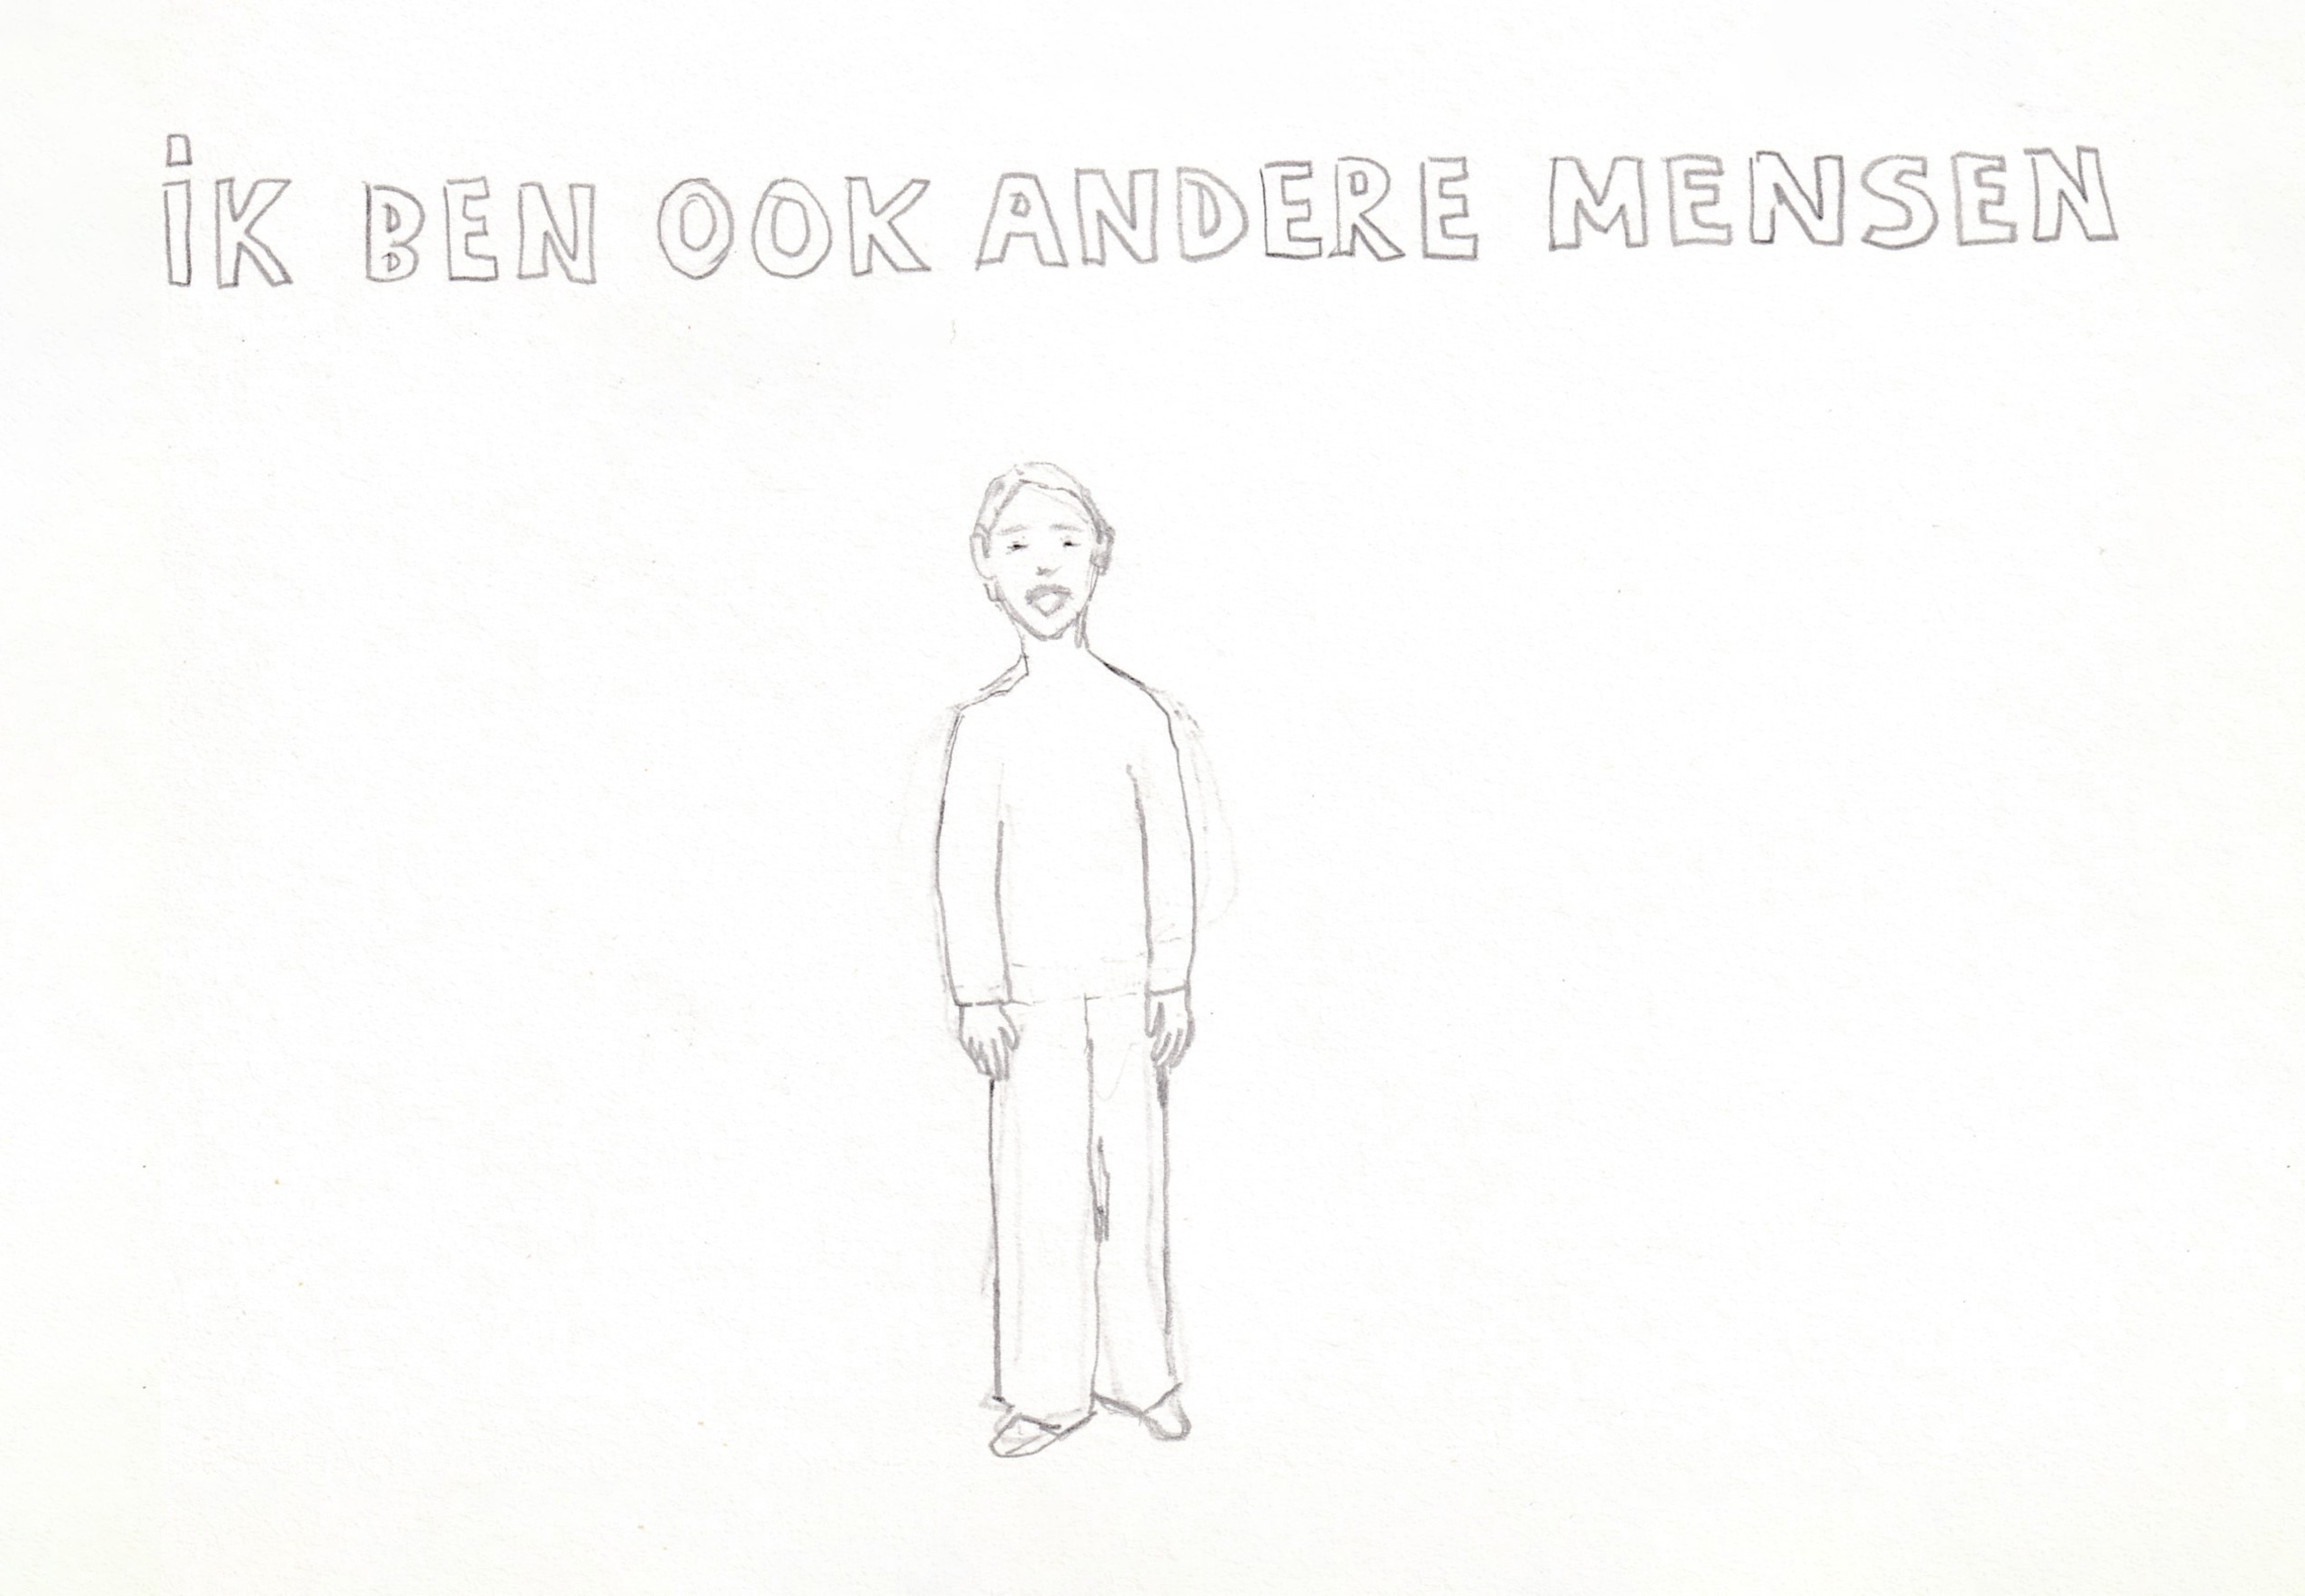 iK BEN OOK ANDERE MENSEN